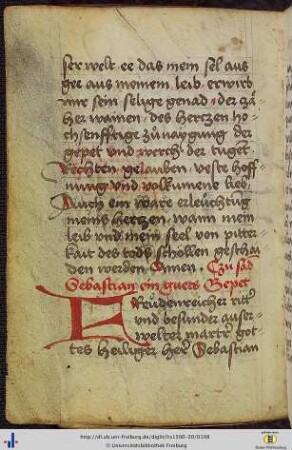 ser welt ee das mein sel aus
gee aus meinem leib erwirb
mir sein selige genad der zä
her wainen des hertzen ho
chsenfftige zů naygung der
gepet und werch der tuget
Rechten gelauben veste hoff
nung und volkumene lieb
Auch ein ware erleuchtig
meins hertzen wann mein
leib und mein seel von pitter
kait des tods schollen geschai
den werden Amen Czu sand
Sebastian ein guets Gepet
Freudenreicher ritt
und besunder auser
welter martrer got
tes heiliger her Sebastian
http://dl.ub.uni-freiburg.de/diglit/hs1500-20/0108
© Universitätsbibliothek Freiburg